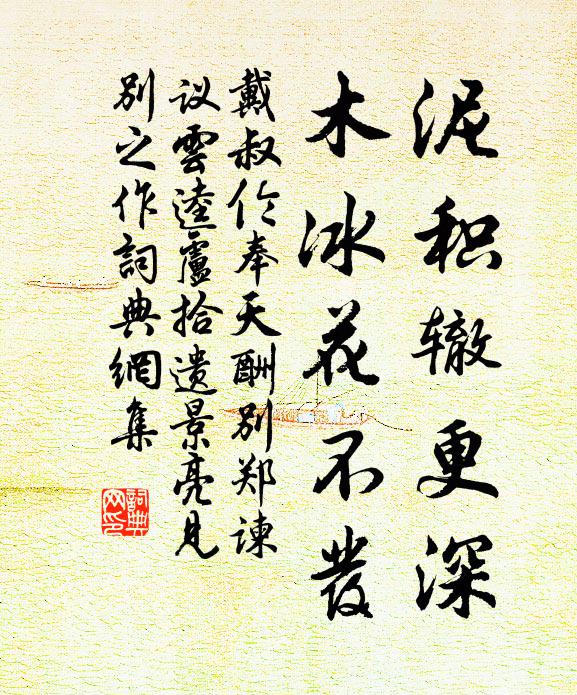 泥积辙更深
木冰花不發
戴叔伦奉天酬别郑谏
议雲逵盧拾遗景亮见
别之作詞典網集
詞典
网印